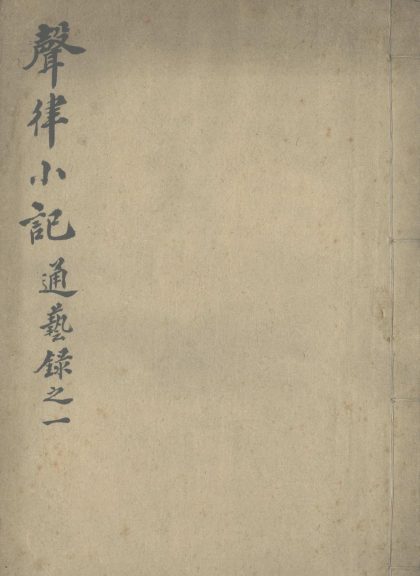 聲律小記
通藝録之一